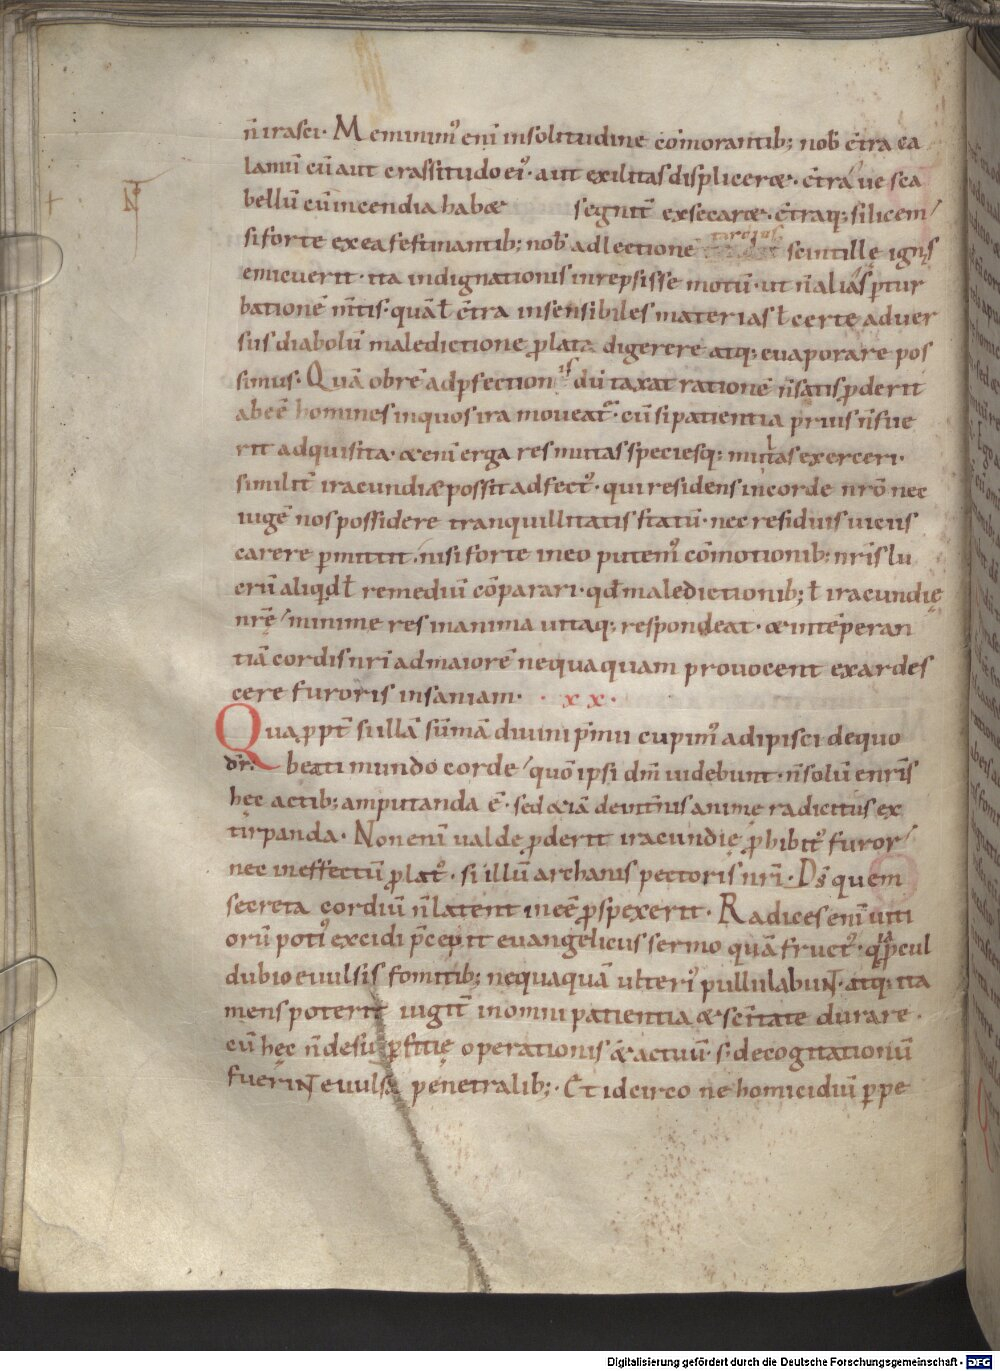 n̄ irasci. Meminim᾽ enī in solitudine cōmorantib; nob̄ c̄tra ca
lamū cū aut crassitudo ei᾽. aut exilitas displiceret. c̄tra ue sca
bellū cū incendia habæ segnit̄ exsecaræ. c̄traq; silicem
si forte ex ea festinantib; nob̄ ad lectionē tardius scintillę ignis
emicuerit. ita indignationis inrepsisse motū. ut n̄ alias p̄tur
batione m̄tis. quā ł c̄tra insensibiles materias ł certe aduer
sus diabolū maledictione plata digerere atq; euaporare pos
simus. Quā obrē ad pfectionis dūtaxat rationē n̄ satis pderit
abeē homines in quos ira moueat᾽. cū si patientia prius n̄ fue
rit adquisita. æenī erga res mutas speciesq; multas exerceri.
similit̄ iracundiæ possit adfect᾽. qui residens in corde nrō nec
iugē nos possidere tranquillitatis statū. nec residuis uiciis
carere pmittit. nisi forte in eo putem᾽ cōmotionib; nrīs lu
crū aliqd ł remediū cōparari. qd maledictionib; ł iracundię
nrę̄ minime res inanima utiaq; respondeat. æ intēperan
tiā cordis nrī ad maiorē nequaquam prouocent exardes
cere furoris insaniam. .xx.
Qua ppt̄ si illā sūmā diuini p̄mii cupim᾽ adipisci de quo
dr̄: beati mundo corde quō ipsi dm̄ uidebunt. n̄ solū e nrīs
hęc actib; amputanda ē. sed æiā de int̄nis animę radicitus ex
tirpanda. Non enī ualde pderit iracundię phibit᾽ furor
nec in effectū plat᾽. si illū archanis pectoris nrī. Ds̄ quem
secreta cordiū n̄ latent ineē pspexerit. Radices enī uiti
orū poti᾽ excidi p̄cepit euangelicus sermo quā fruct᾽. q pcul
dubio euulsis fomitib; nequaquā ulteri᾽ pullulabunt. atq; ita
mens poterit iugit̄ in omni patientia æ sc̄itate durare.
cū hęc n̄ de sup̄fitię operationis æ actuū. s; de cogitationū
fuerint euulsa penetralib;. Et idcirco ne homicidiū ppe